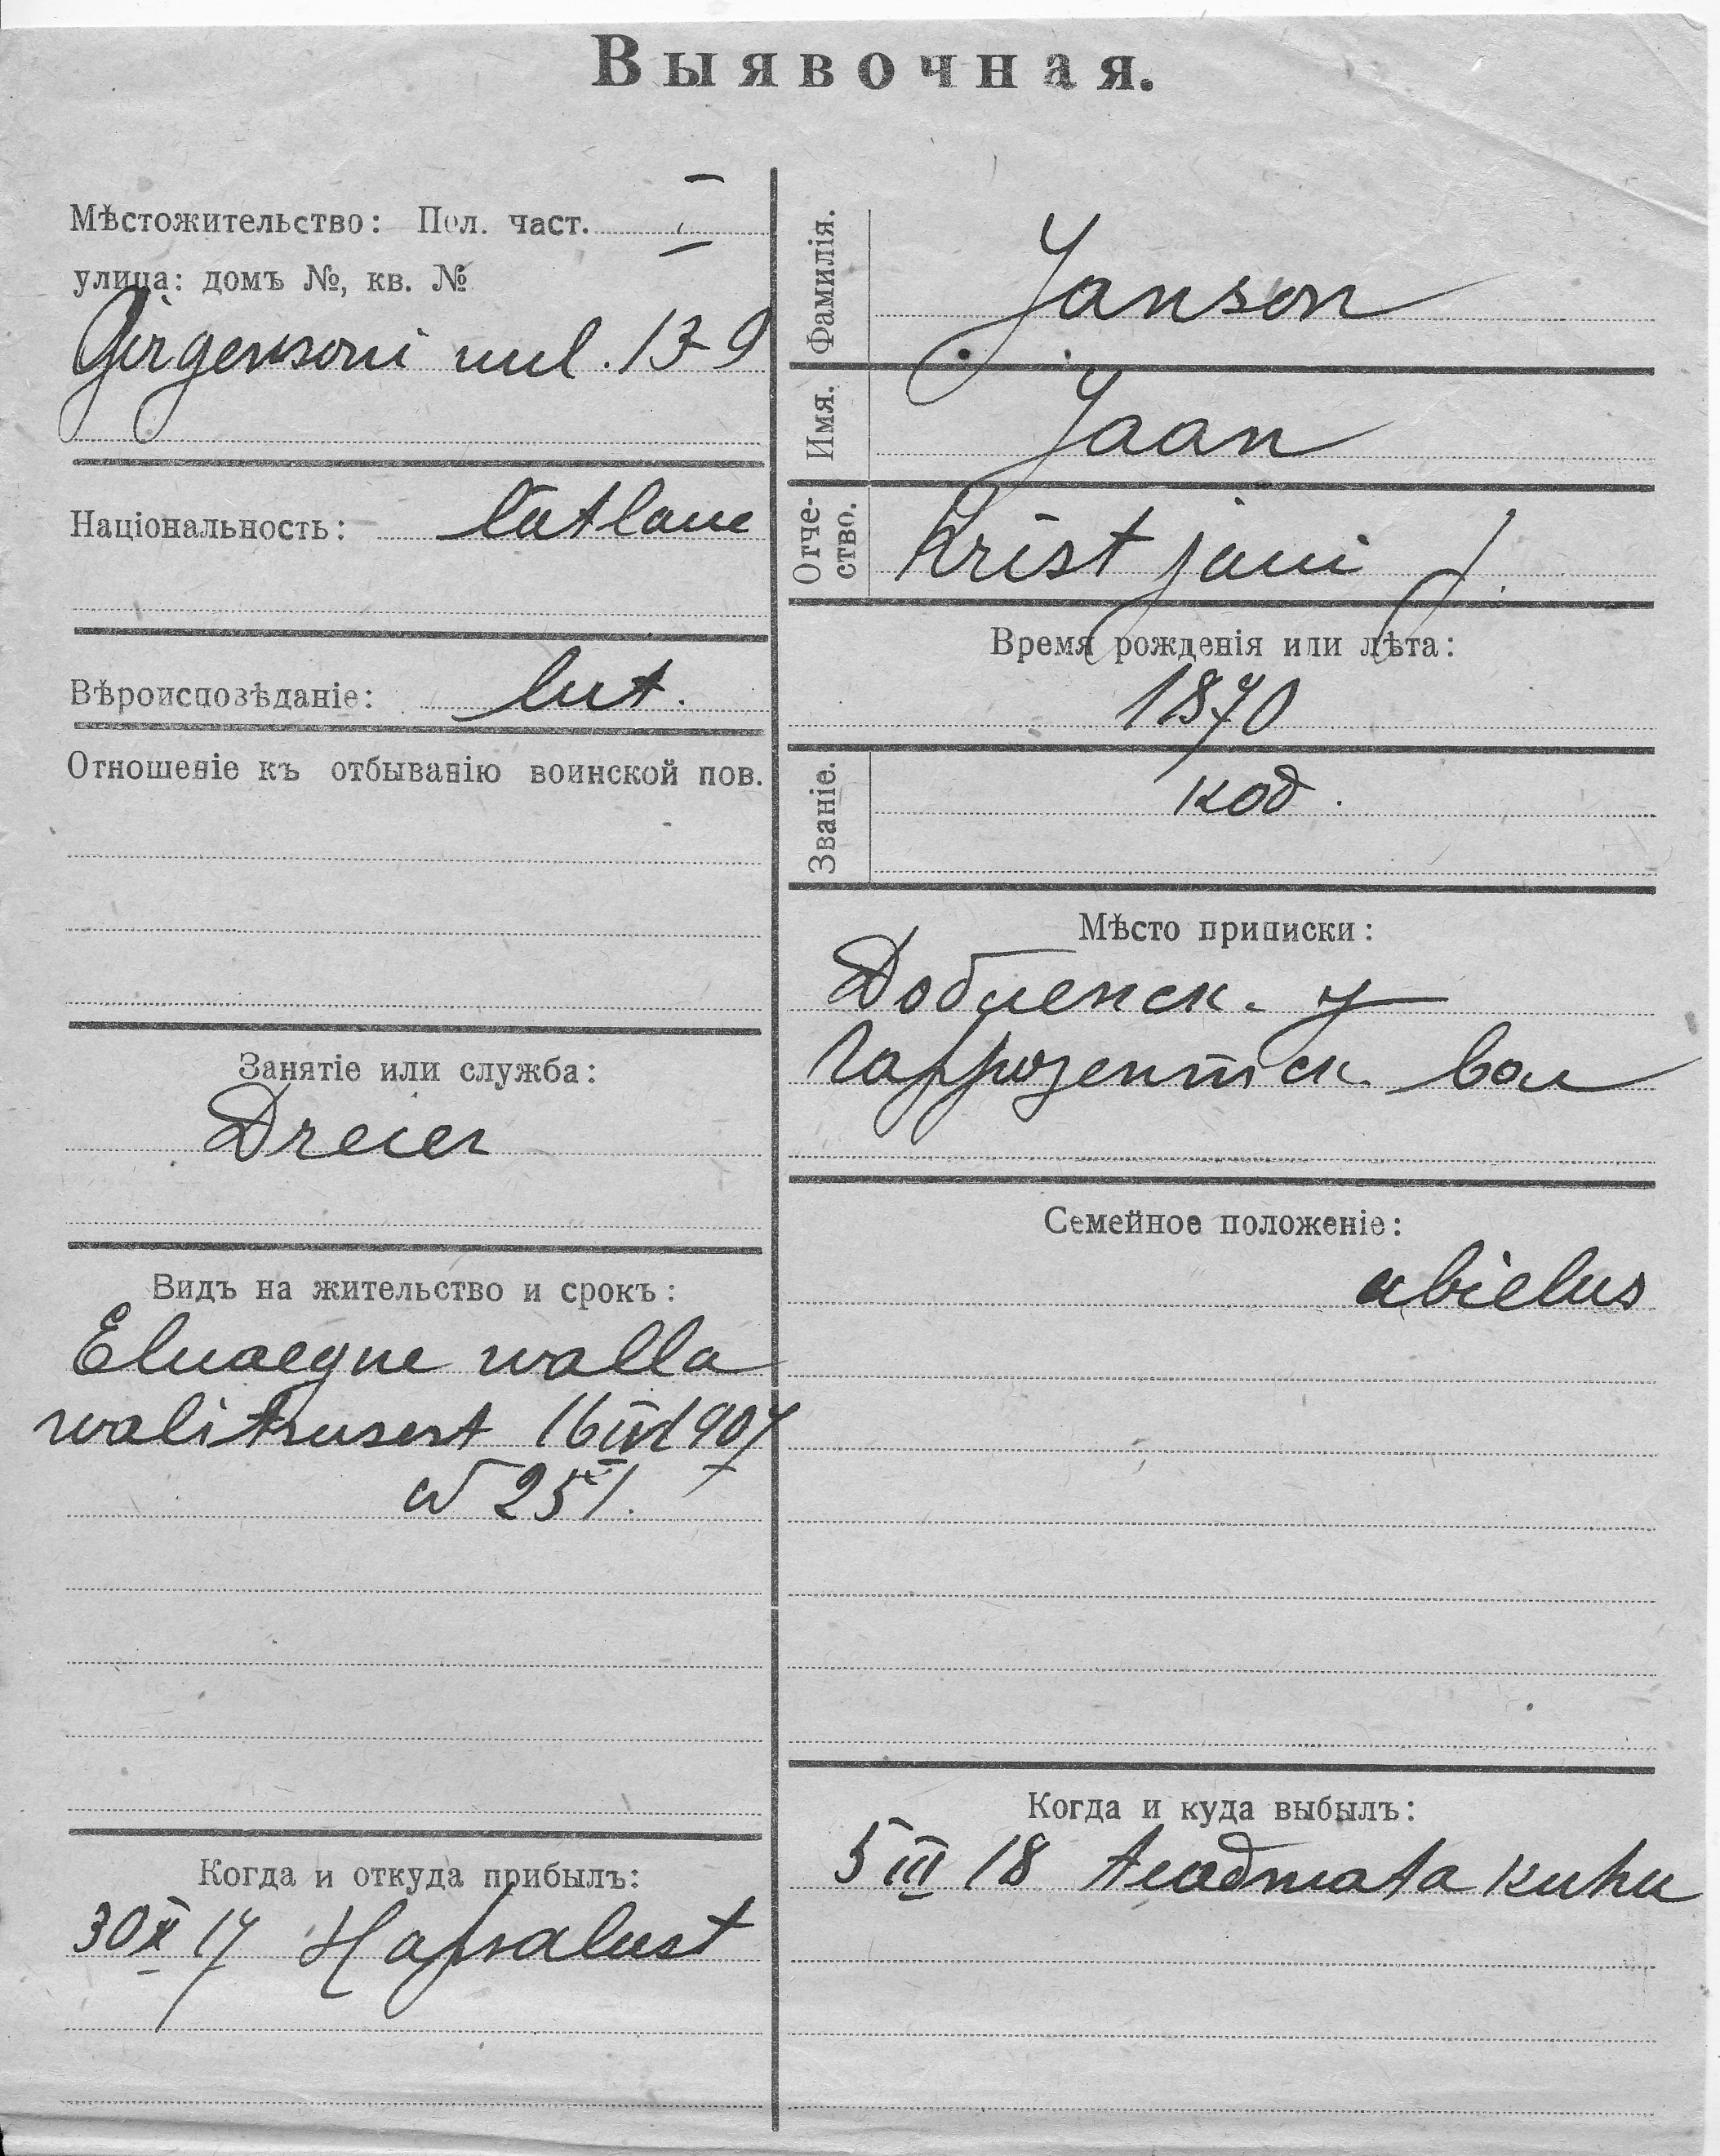 Выявочная.
Мѣстожительство: Пол. част. I
улица: домъ №, кв. №
Girgensoni uul. 13-9
Національность: lätlane
Вѣроисповѣданіе: lut.
Отношеніе къ отбыванію воинской пов.
Занятіе или служба:
Dreier
Видъ на жительство и срокъ:
Eluaegne walla
walitsusest 16 1907
№ 251.
Когда и откуда прибылъ:
30 X 17 Hapsalust
Фамилія. Janson
Имя. Jaan
Отче-
ство. Kristjani p.
Время рожденія или лѣта:
1870
Званіе. код.
Мѣсто приписки:
Добленск. у
Гаррозентск. вол
Семейное положеніе:
abielus
Когда и куда выбылъ:
5 III 18 teadmata kuhu